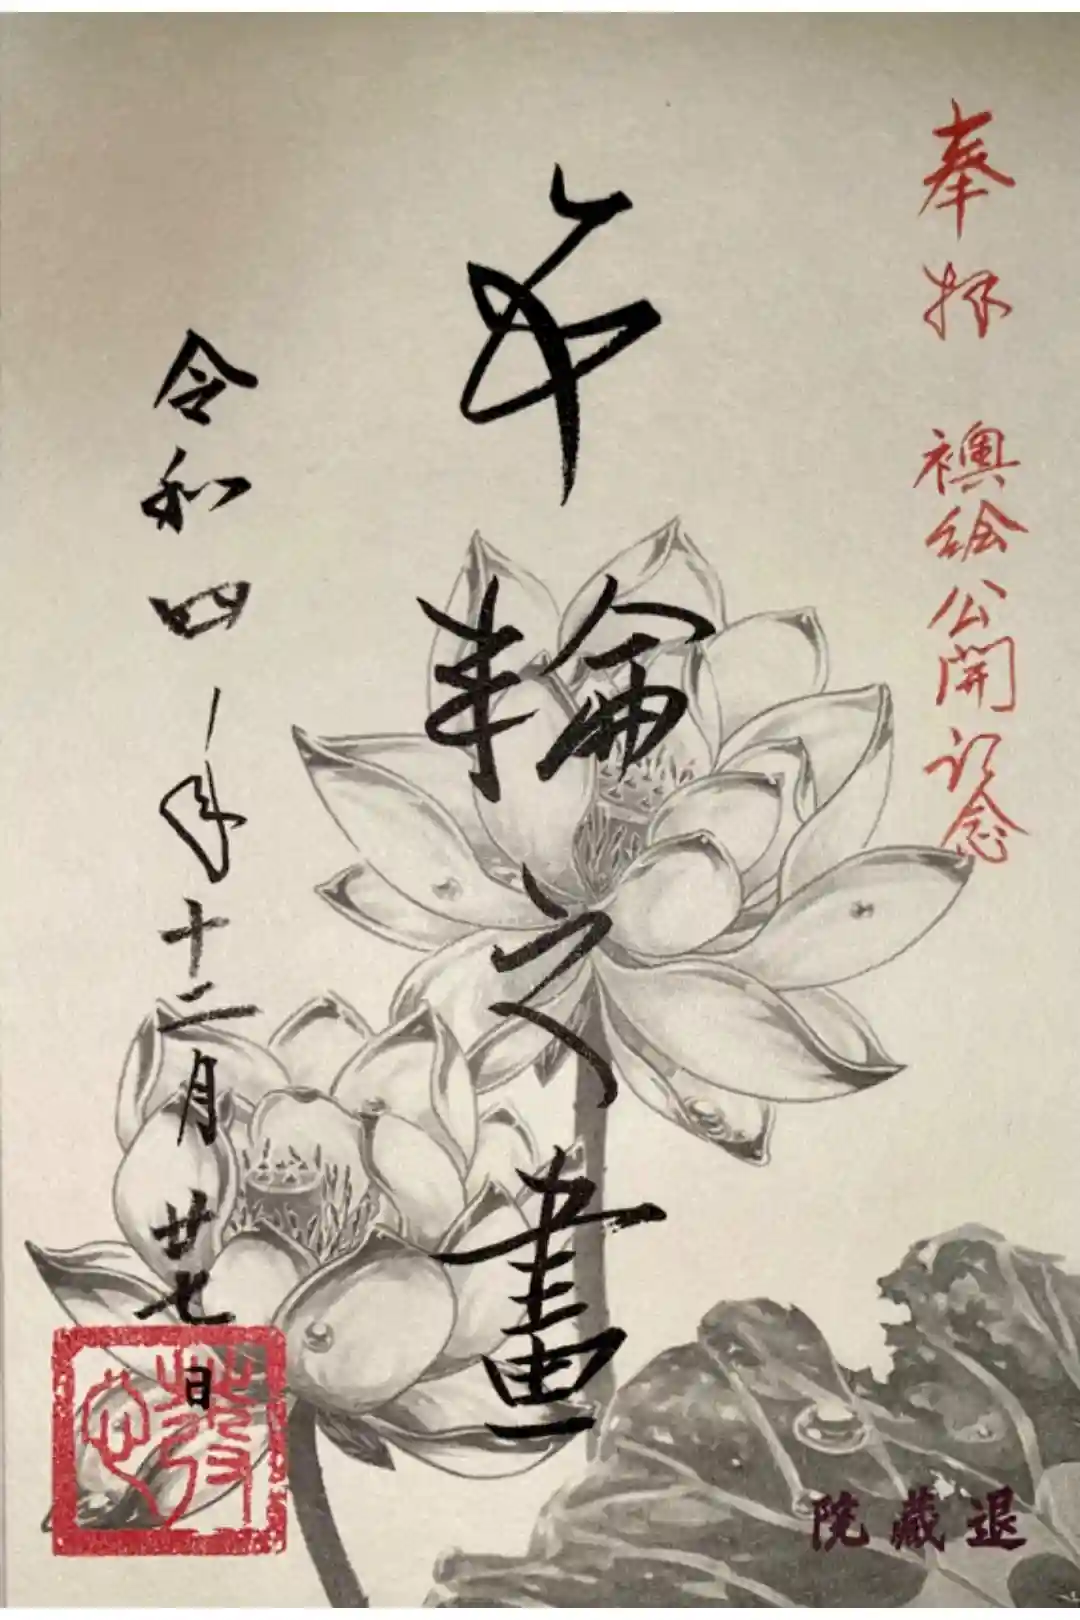 奉拝 襖絵公開記念
五輪之畫
令和四年十二月廿七日
發心
退蔵院